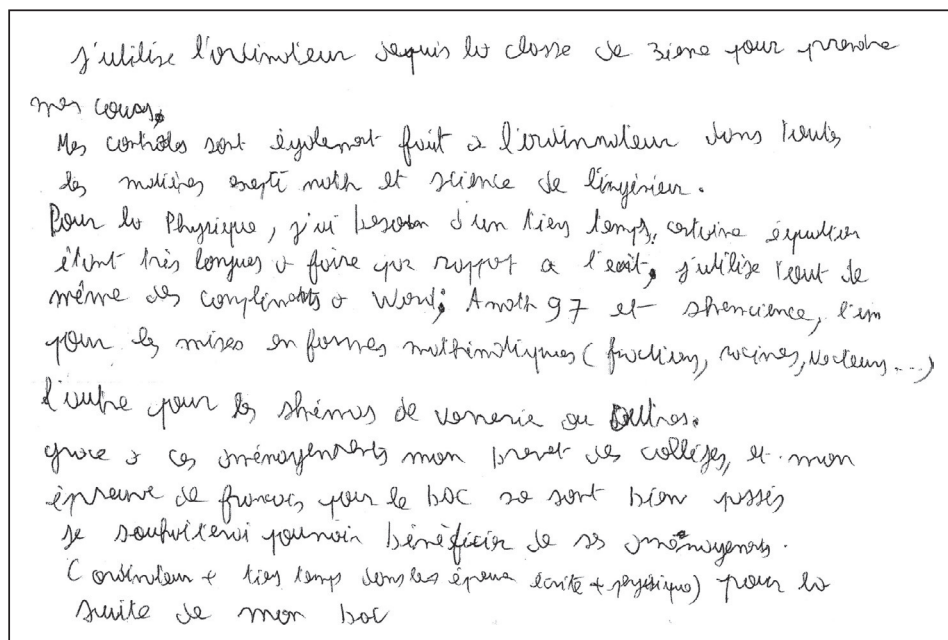 j'utilise l'ordinateur depuis la classe de 3ieme pour prendre
mes cours.
Mes contrôles sont également fait a l'ordinnateur dans toutes
les matières exepté math et science de l'ingénieur.
Pour la Physique, j'ai besoin d'un tiers temps, certaine équation
étant très longues a faire par rapport a l'ecrit, j'utilise tout de
même des compléments a Word; Amath 97 et shemcience, l'un
pour les mises en formes mathématiques (fractions, racines, vecteurs ...)
l'autre pour les shémas de verrerie ou autres.
grace a ces aménagements mon brevet des collèges, et mon
épreuve de francais pour le bac se sont bien passés
je souhaiterai pouvoir bénéficier de ses aménagements.
(ordinateur + tiers temps dans les épreuve écrite + physique) pour la
suite de mon bac